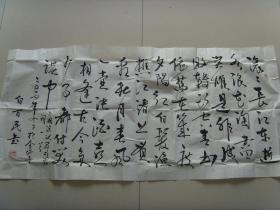 滚滚长江东逝
水浪花淘尽
英雄是非成
败转头空青山
依旧在几度
夕阳红白发渔
樵江渚上惯
看秋月春风
一壶浊酒喜
相逢古今多
少事都付笑
谈中